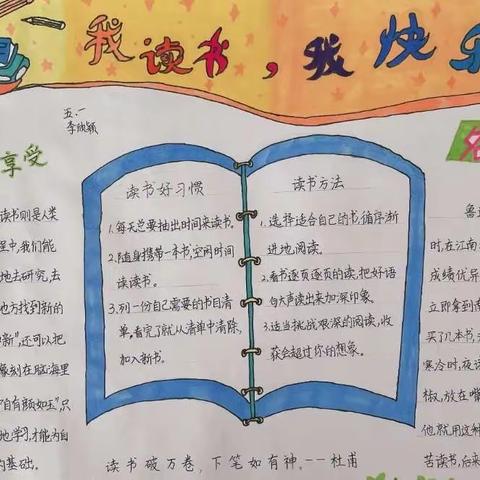 我读书，我快乐
五.一
李欣颖
享受
读书则是人类
程中，我们能
地去研究，去
也方找到新的
新”，还可以把
象刻在脑海里
自有颜如玉”只
地学习，才能为自
的基础。
读书好习惯
1.每天总要抽出时间来读书。
2.随身携带一本书，空闲时间
读读书。
3.列一份自己需要的书目清
单，看完了就从清单中清除，
加入新书。
读书方法
1.选择适合自己的书，循序渐
进地阅读。
2.看书逐页逐页的读，把好语
句大声读出来加深印象。
3.适当挑战艰深的阅读，收
获会超过你的想象。
读书破万卷，下笔如有神。--杜甫
名
鲁迅
时，在江南
成绩优异
立即拿到南
买了几本书，
寒冷时，夜读
椒，放在嘴
他就用这种
苦读书，后来